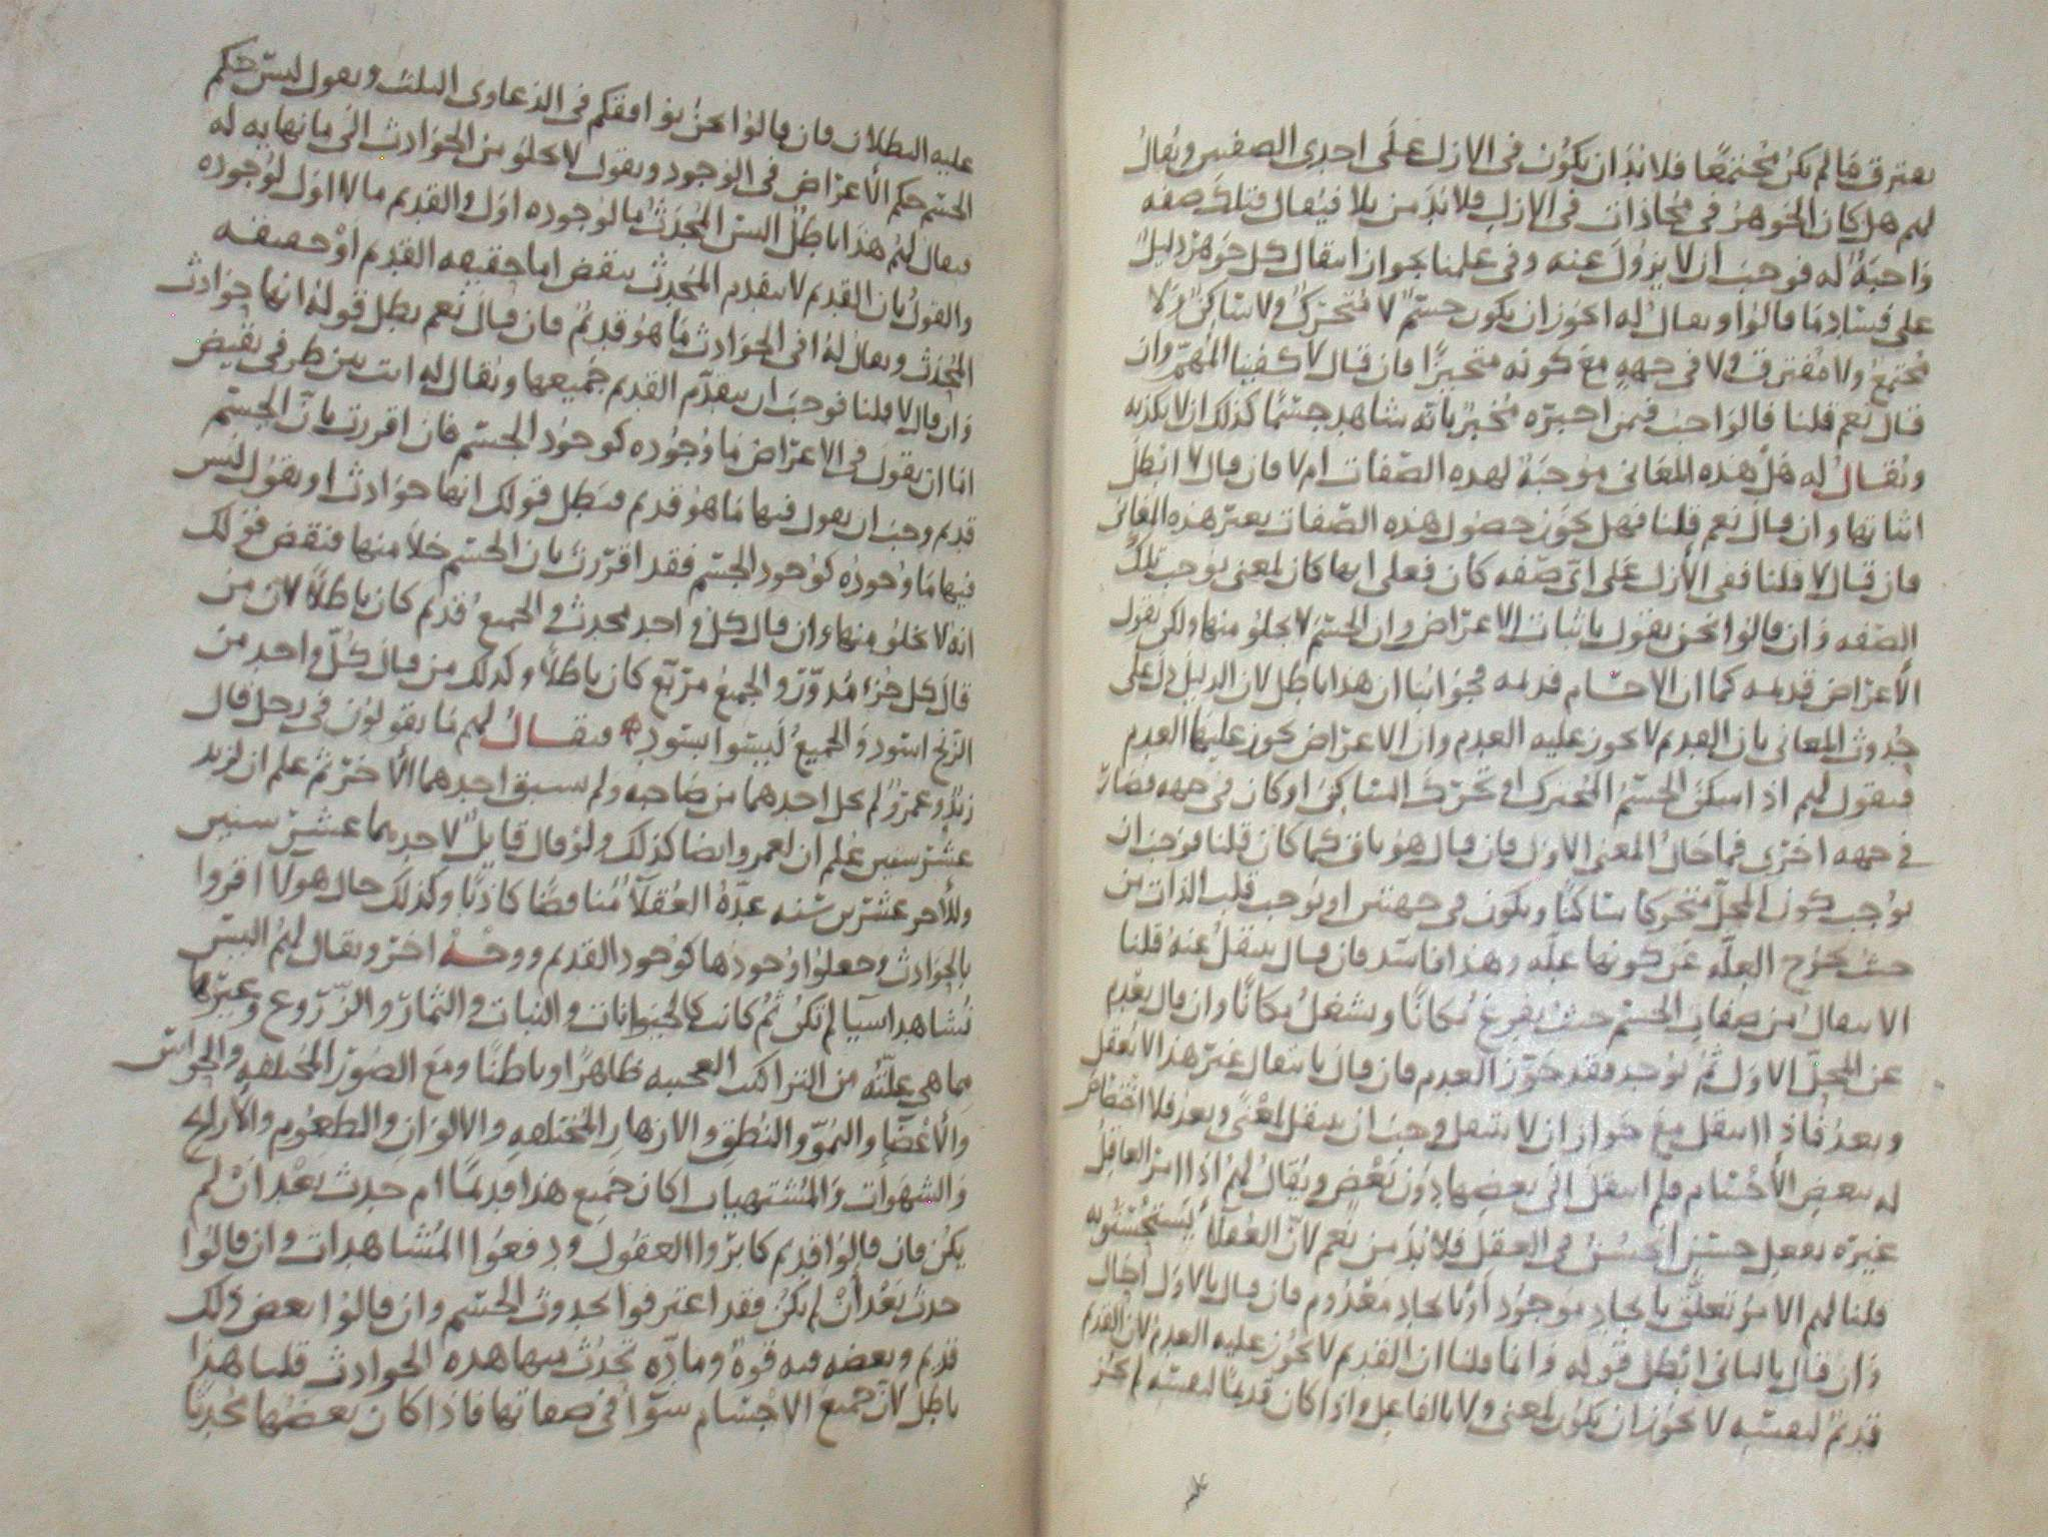 يفترق ما لم يكن مجتمعا فلا بد ان يكون في الازل على احدى الصفتين ويقال
لهم هل كان الجوهر في محاذات في الازل فلا بد من بلا فيقال فتلك صفه
واجبة له فوجب ان لا يزول عنه وفي علمنا بجواز انتقال كل جوهر دليل
على فساد ما قالوا ويقال له ايجوز ان يكون جسم لا متحرك ولا ساكن ولا
مجتمع ولا مفترق ولا في جهه مع كونه متحيزا فان قال لا كفينا المهم وان
قال نعم قلنا فالواجب فيمن اخبره مخبر بانه شاهد جسما كذلك ان لا يكذبه
ويقال له هل هذه المعاني موجبة لهذه الصفات ام لا فان قال لا ابطل
اثباتها وان قال نعم قلنا فهل يجوز حصول هذه الصفات بغير هذه المعاني
فان قال لا قلنا ففي الازل على اي صفه كان فعلى ايها كان لمعنى يوجب تلك
الصفه وان قالوا نحن نقول باثبات الاعراض وان الجسم لا يخلو منها ولكن نقول
الاعراض قديمه كما ان الاجسام قديمه فجوابنا ان هذا باطل لان الدليل دل على
حدوث المعاني بان القديم لا يجوز عليه العدم وان الاعراض يجوز عليها العدم
فنقول لهم اذا سكن الجسم المتحرك او تحرك الساكن او كان في جهه فصار
في جهه اخرى فما حال المعنى الاول فان قال هو باق كما كان قلنا فوجب ان
يوجب كون المحل متحركا ساكنا ويكون في جهتين او يوجب قلب الذات من
حيث تخرج العله عن كونها عله وهذا فاسد فان قال ينتقل عنه قلنا
الانتقال من صفات الجسم حيث يفرغ مكانا ويشغل مكانا وان قال يعدم
عن المحل الاول ثم يوجد فقد جوز العدم فان قال بانتقال غير هذا لا يعقل
وبعد فاذا انتقل مع جواز ان لا ينتقل وجب ان ينتقل لمعنى وبعد فلا اختصاص
له ببعض الاجسام فلم انتقل الى بعضها دون بعض ويقال لهم اذا امر العاقل
غيره بفعل حسن ايحسن في العقل فلا بد من نعم لان العقلاء يستحسنونه
قلنا لهم الامر تعلق بايجاد موجود او بايجاد معدوم فان قال بالاول احال
وان قال بالثاني ابطل قوله وانما قلنا ان القديم لا يجوز عليه العدم لان القديم
قديم لنفسه لا يجوز ان يكون لمعنى ولا بالفاعل واذا كان قديما لنفسه لم يجز
عليه البطلان فان قالوا نحن نوافقكم في الدعاوى الثلث ونقول ليس حكم
الجسم حكم الاعراض في الوجود ونقول لا يخلو من الحوادث الى ما نهايه له
فيقال لهم هذا باطل اليس المحدث ما لوجوده اول والقديم ما لا اول لوجوده
والقول بان القديم لا يتقدم المحدث ينقض اما حقيقه القديم او حقيقه
المحدث ويقال له افي الحوادث ما هو قديم فان قال نعم بطل قوله انها حوادث
وان قال لا قلنا فوجب ان يتقدم القديم جميعها ويقال له انت بين طرفي نقيض
اما ان تقول في الاعراض ما وجوده كوجود الجسم فان اقررت بان الجسم
قديم وجب ان تقول فيها ما هو قديم فيبطل قولك انها حوادث او تقول ليس
فيها ما وجوده كوجود الجسم فقد اقررت بان الجسم خلا منها فنقض قولك
انه لا يخلو منها وان قال كل واحد محدث والجميع قديم كان باطلا لان من
قال كل جزء مدور والجميع مربع كان باطلا وكذلك من قال كل واحد من
الزنج اسود والجميع ليسوا بسود فيقال لهم ما تقولون في رجل قال
زيد وعمرو لم يخل احدهما من صاحبه ولم يسبق احدهما الاخر ثم علم ان لزيد
عشر سنين علم ان لعمرو ايضا كذلك ولو قال قايل لاحدهما عشر سنين
وللاخر عشرين سنه عده العقلاء مناقضا كاذبا وكذلك حال هولا اقروا
بالحوادث وجعلوا وجودها كوجود القديم ووجه اخر ويقال لهم اليس
نشاهد اشيا لم تكن ثم كانت كالحيوانات والنبات والثمار والزروع وغيرها
بما هي عليه من التراكيب العجيبه ظاهرا وباطنا ومع الصور المختلفه والحواس
والاعضا والنمو والنطق والازهار المختلفه والالوان والطعوم والاراييح
والشهوات والمشتهيات اكان جميع هذا قديما ام حدث بعد ان لم
يكن فان قالوا قديم كابروا العقول ودفعوا المشاهدات وان قالوا
حدث بعد ان لم يكن فقد اعترفوا بحدوث الجسم وان قالوا بعض ذلك
قديم وبعضه فيه قوة وماده تحدث منها هذه الحوادث قلنا هذا
باطل لان جميع الاجسام سوا في صفاتها فاذا كان بعضها محدثا